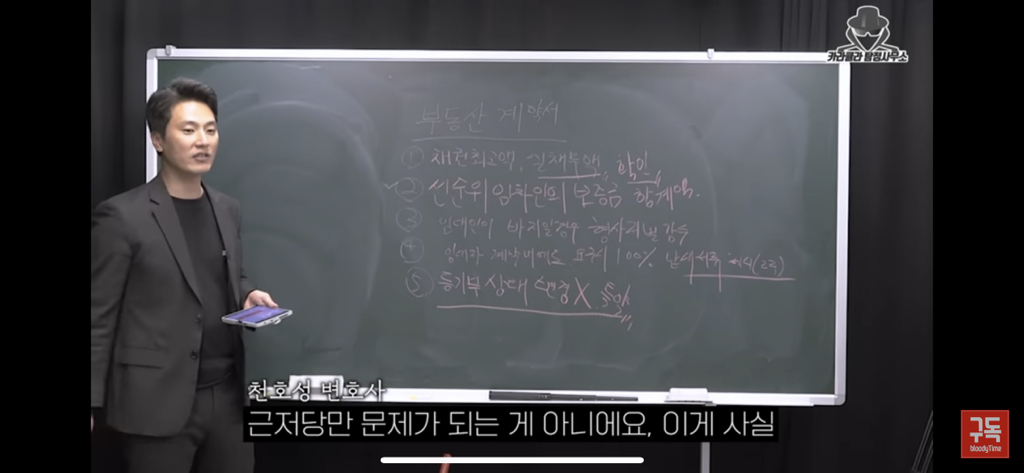 카라큘라 탐정사무소
부동산 계약서
① 채권최고액, 실채무액 확인
② 선순위 임차인의 보증금 합계액.
③ 임대인이 바지일경우 형사처벌 감수
④ 100%
⑤ 등기부 상태 변경 X
천호성 변호사
근저당만 문제가 되는 게 아니에요, 이게 사실
구독
bloodyTime